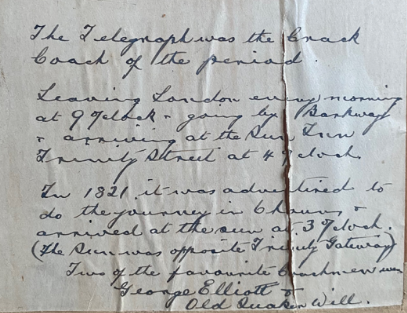 The Telegraph was the Crack
Coach of the period.
Leaving London every morning
at 9 O'clock & going by Barkway
& arriving at the Sun Inn
Trinity Street at 4 O'clock.
In 1821 it was advertised to
do the journey in 6 hours &
arrived at the Sun at 3 O'clock.
(The Sun was opposite Trinity Gateway)
Two of the favourite Coachmen were
George Elliott &
Old Quaker Will.